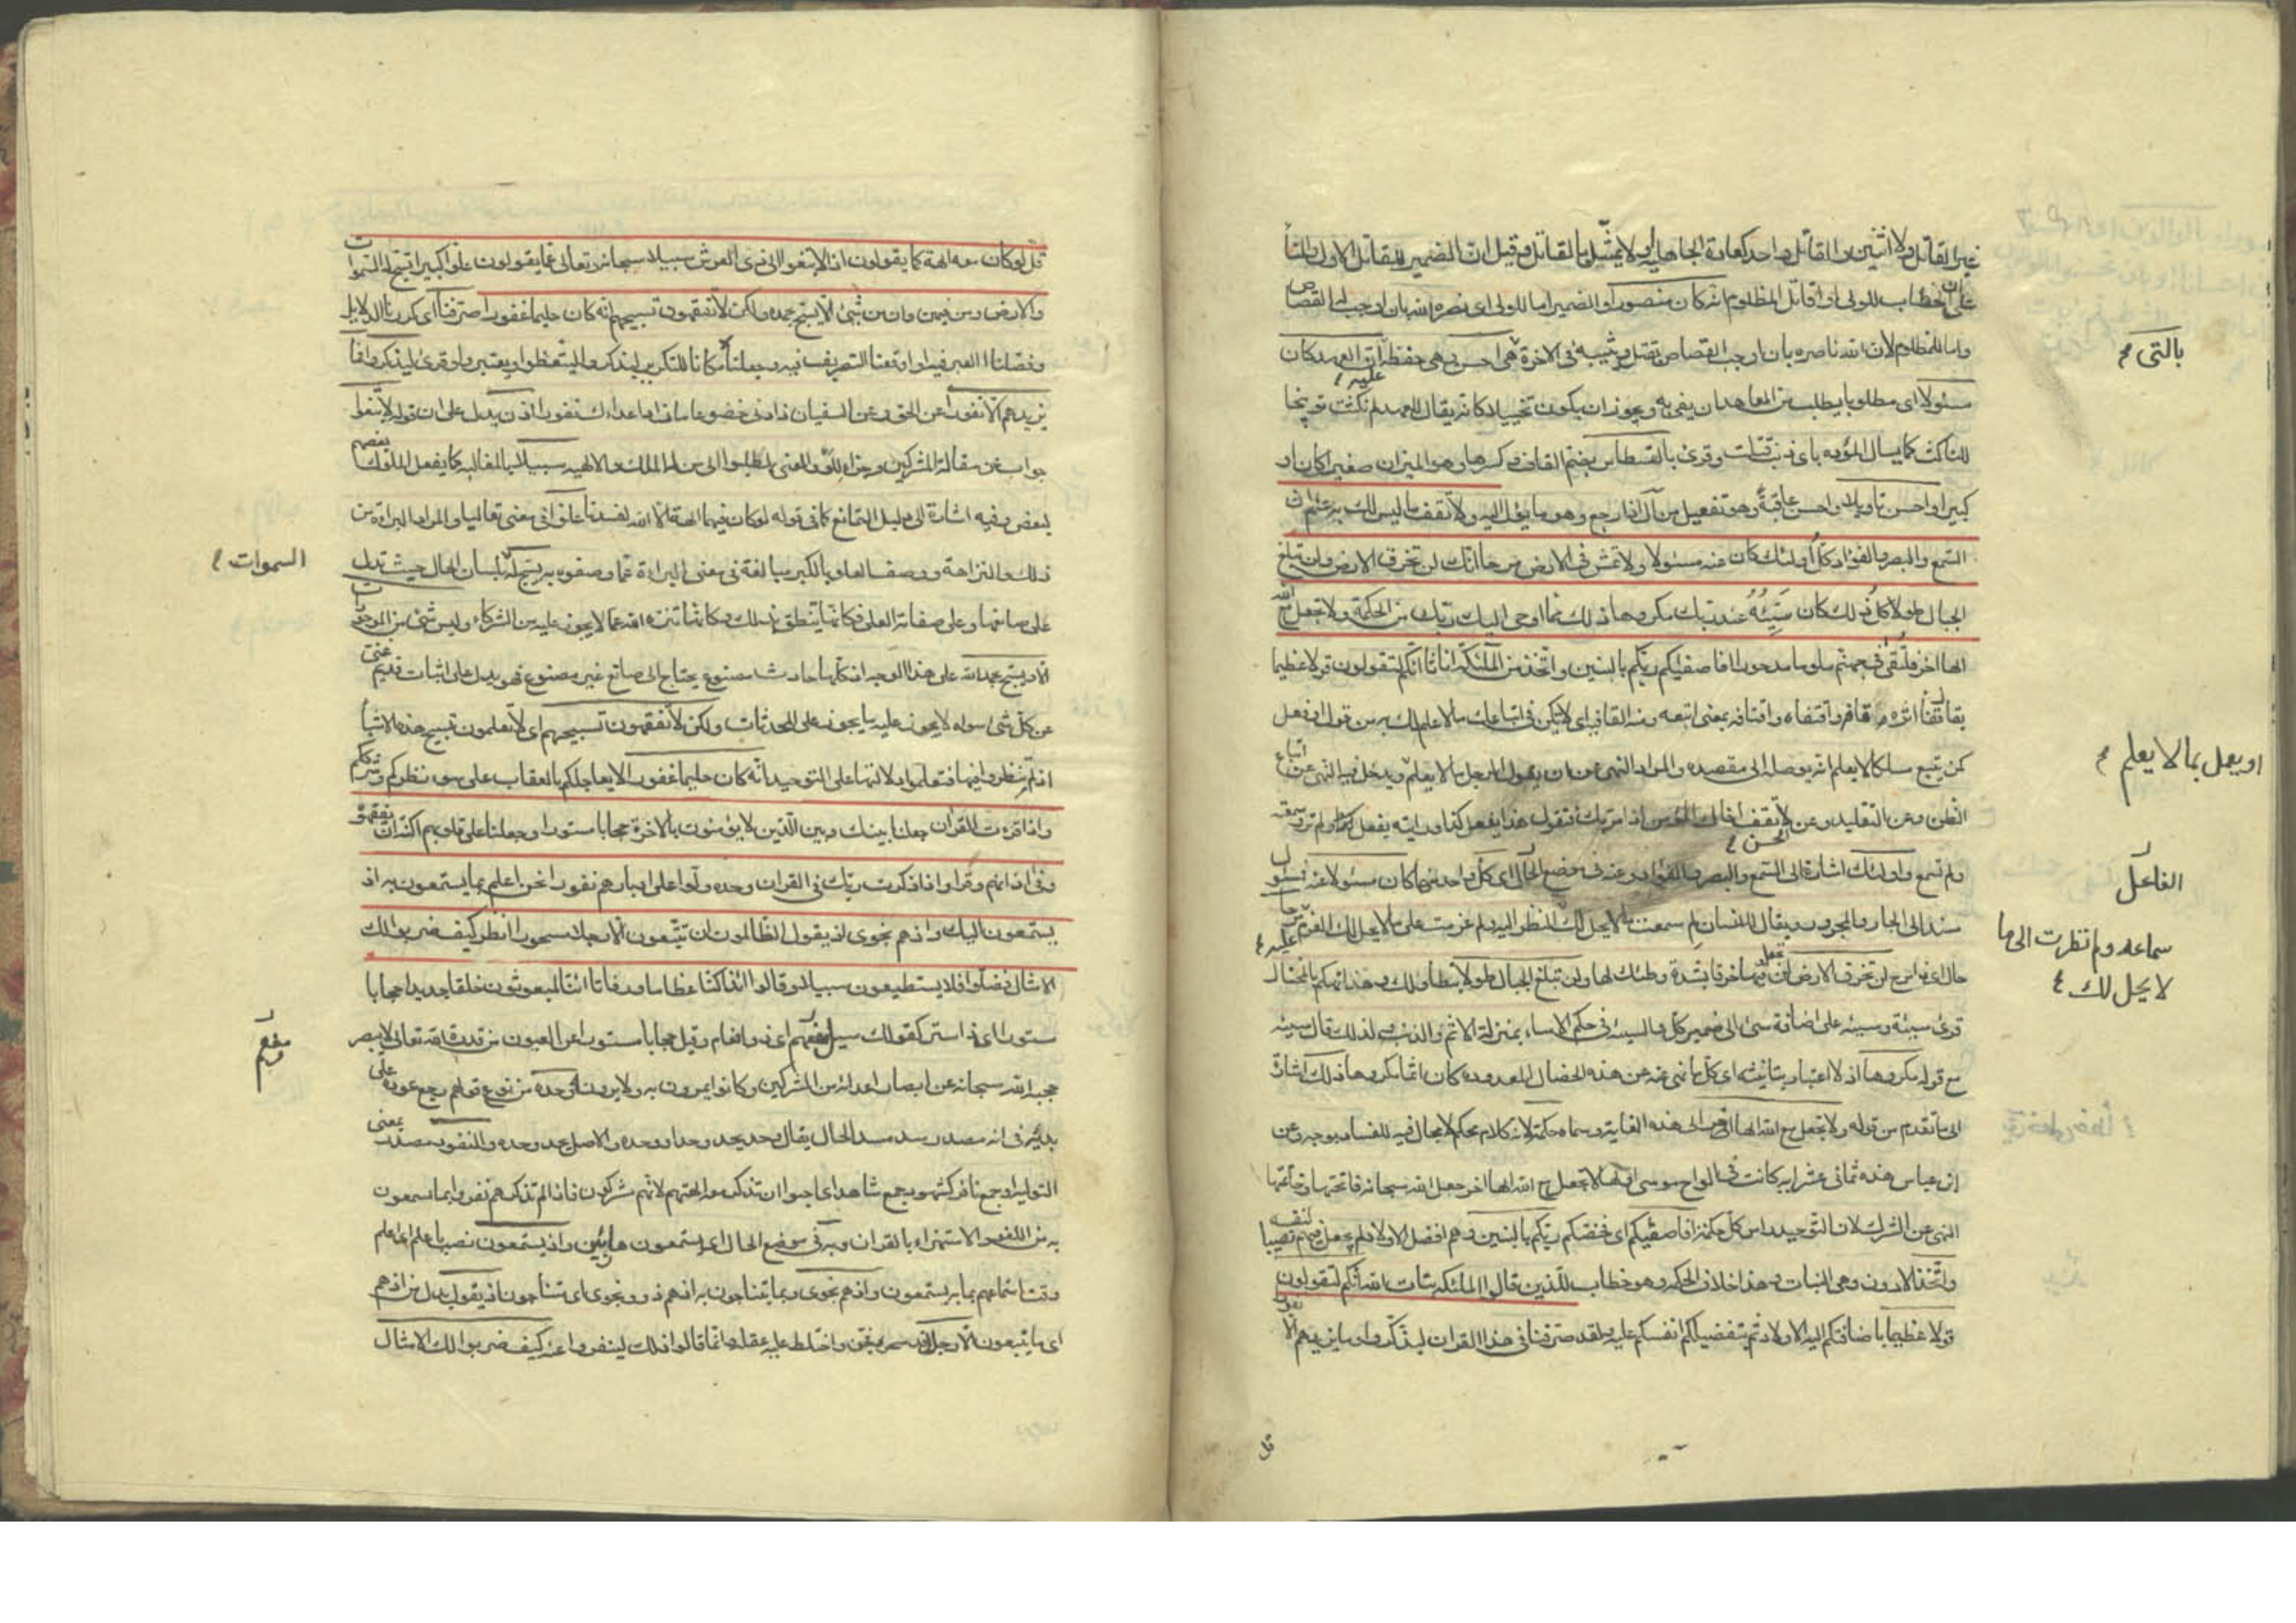 غير القاتل ولا اثنين والقاتل واحد كعادة الجاهلية ولا يمثّل بالقاتل وقيل ان الضمير للقاتل الاول والتا
على ان خطاب للولى او قاتل المظلوم انه كان منصورا والضمير اما للولى اى نصره الله بان اوجب له القصاص
واما للمظلوم لان الله ناصره بان اوجب القصاص بقتله ويثيبه فى الاخرة هى احسن وهى حفظه ان العهد كان
بالتى
مسئولا اى مطلوبا يطلب من المعاهد ان يفى به ويجوز ان يكون تخييلا كانه يقال للعهد لم نكثت توبيخا
عليه
للناكث كما يسال المؤدة باى ذنب قتلت وقرئ بالقسطاس بضم القاف وكسرها وهو الميزان صغيرا كان او
كبيرا واحسن تاويلا واحسن عاقبة وهو تفعيل من آل اذا رجع وهو ما يؤل اليه ولا تقف ما ليس لك به علم ان
السمع والبصر والفؤاد كل أولئك كان عنه مسئولا ولا تمش فى الارض مرحا انك لن تخرق الارض ولن تبلغ
الجبال طولا كل ذلك كان سَيِّئُهُ عند ربك مكروها ذلك مما اوحى اليك ربك من الحكمة ولا تجعل مع الله
الها اخر فتلقى فى جهنم ملوما مدحورا افاصفيكم ربكم بالبنين واتخذ من الملئكة اناثا انكم لتقولون قولا عظيما
يقال قفا اثره وقافه واقتفاه واقتافه بمعنى اتبعه ومنه القافة اى لا يكن فى اتباعك ما لا علم لك به من قول او فعل
كمن يتبع مسلكا لا يعلم انه يوصله الى مقصده والمراد النهى عن ان يقول الرجل ما لا يعلم ويدخل فيه النهى عن اتباع
او يعمل بما لا يعلم
الظن وعن التقليد وعن لا تقف اخاك المؤمن اذا مر بك فتقول هذا يفعل كذا ورايته يفعل كذا ولم تره وسمعته
الحسن
ولم تسمع واولئك اشارة الى السمع والبصر والفؤاد وعنه فى موضع الفاعل اى كل واحد منها كان مسئولا عنه فمسئول
الفاعل
مسند الى الجار والمجرور ويقال للانسان لم سمعت ما لا يحل لك النظر اليه ولم عزمت على ما لا يحل لك العزم عليه مرحا
سماعه ولم نظرت الى ما
لا يحل لك
حال اى ذا مرح لن تخرق الارض لن تجعل فيها خرقا بشدة وطئك لها ولن تبلغ الجبال طولا بتطاولك وهذا تهكم بالمختال
قرئ سيئة وسيئه على اضافة سئ الى ضمير كل والسيئة فى حكم الاسماء بمنزلة الاثم والذنب ولذلك قال سيئة
مع قوله مكروها اذ لا اعتبار بتانيثه اى كل ما نهى عنه من هذه الخصال المعدودة كان اثما مكروها ذلك اشارة
الى ما تقدم من قوله ولا تجعل مع الله الها اخر الى هذه الغاية وسماه حكمة لانه كلام محكم لا مجال فيه للفساد بوجه وعن
ابن عباس هذه ثمانى عشر اية كانت فى الواح موسى اولها لا تجعل مع الله الها اخر جعل الله سبحانه فاتحتها وخاتمتها
النهى عن الشرك لان التوحيد راس كل حكمة افاصفيكم اى فخصكم ربكم بالبنين وهم افضل الاولاد لم يجعل فيهم نصيبا لنفسه
واتخذ الادون وهى البنات وهذا خلاف الحكمة وهو خطاب للذين قالوا الملئكة بنات الله انكم لتقولون
قولا عظيما باضافتكم اليه الاولاد ثم بتفضيلكم انفسكم عليه ولقد صرفنا فى هذا القران ليذكروا وما يزيدهم الا نفورا
قل
قل لو كان معه الهة كما يقولون اذا لابتغوا الى ذى العرش سبيلا سبحانه وتعالى عما يقولون علوا كبيرا تسبح له السموات
والارض ومن فيهن وان من شئ الا يسبح بحمده ولكن لا تفقهون تسبيحهم انه كان حليما غفورا صرفنا اى كررنا الدلايل
وفصلنا العبر فيه او اوقعنا التصريف فيه وجعلناه مكانا للتكرير ليذكروا ليتعظوا ويعتبروا وقرئ ليذكروا وما
يزيدهم الا نفورا عن الحق وعن السفيان زادنى خضوعا ما زاد اعداءك نفورا اذن يدل على ان قوله لابتغوا
جواب عن مقالة المشركين وجزاء للو والمعنى لطلبوا الى من له الملك والالهية سبيلا بالمغالبة كما يفعل الملوك بعضهم
ببعض وفيه اشارة الى دليل التمانع كما فى قوله لو كان فيهما الهة الا الله لفسدتا علوا فى معنى تعاليا والمراد البراءة من
ذلك والنزاهة ووصف العلو بالكبر مبالغة فى معنى البراءة مما وصفوه به تسبح له بلسان الحال حيث تدل
السموات
على صانعها وعلى صفاته العلى فكانما ينطق بذلك وكانها تنزه الله عما لا يجوز عليه من الشركاء وليس شئ من الموجودات
الا ويسبح بحمد الله على هذا الوجه اذ كلها حادث مصنوع يحتاج الى صانع غير مصنوع فهو يدل على اثبات قديم غنى
عن كل شئ سواه لا يجوز عليه ما يجوز على المحدثات ولكن لا تفقهون تسبيحهم اى لا تعلمون تسبيح هذه الاشياء
اذ لم تنظروا فيها فتعلموا دلالتها على التوحيد انه كان حليما غفورا لا يعاجلكم بالعقاب على سوء نظركم وشرككم
واذا قرات القران جعلنا بينك وبين الذين لا يؤمنون بالاخرة حجابا مستورا وجعلنا على قلوبهم اكنة ان يفقهوه
وفى اذانهم وقرا واذا ذكرت ربك فى القران وحده ولوا على ادبارهم نفورا نحن اعلم بما يستمعون به اذ
يستمعون اليك واذ هم نجوى اذ يقول الظالمون ان تتبعون الا رجلا مسحورا انظر كيف ضربوا لك
الامثال فضلوا فلا يستطيعون سبيلا وقالوا ائذا كنا عظاما ورفاتا ائنا لمبعوثون خلقا جديدا حجابا
مستورا اى ذا ستر كقولك سيل مفعم اى ذو افعام وقيل حجابا مستورا عن العيون من قدرة الله تعالى لا يبصر
مفعم
حجب الله سبحانه عن ابصار اعدائه من المشركين وكانوا يمرون به ولا يرونه وحده من نوع قولهم رجع عوده على
بدئه فى انه مصدر سد مسد الحال يقال وحد يحد وحدا وحدة والاصل يحد وحده والنفور مصدر بمعنى
التولية او جمع نافر كشهود جمع شاهد اى احبوا ان تذكر معه الهتهم لانهم مشركون فاذا لم تذكرهم نفروا بما يسمعون
به من اللغو والاستهزاء بالقران وبه فى موضع الحال اى يستمعون هازئين واذ يستمعون نصب باعلم اى اعلم
وقت استماعهم بما به يستمعون واذ هم نجوى وبما يتناجون به اذ هم ذوو نجوى اى متناجون اذ يقول بدل من اذ هم
اى ما يتبعون الا رجلا قد سحر فجن واختلط عليه عقله وانما قالوا ذلك لينفروا عنه كيف ضربوا لك الامثال